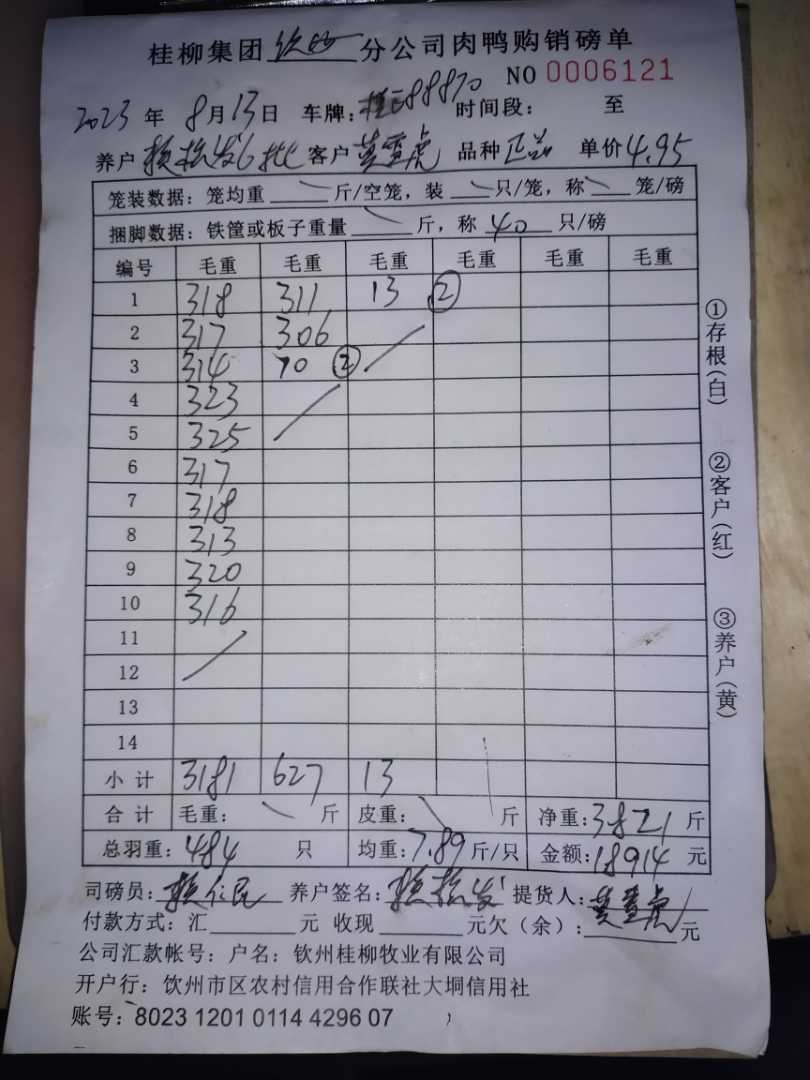 桂柳集团钦州分公司肉鸭购销磅单
NO 0006121
2023 年 8月13日 车牌：桂E88870 时间段： 至
养户 赖松发6批 客户 黄雪虎 品种 正品 单价4.95
笼装数据：笼均重 斤/空笼，装 只/笼，称 笼/磅
捆脚数据：铁筐或板子重量 斤，称 40 只/磅
编号 毛重 毛重 毛重 毛重 毛重 毛重
1 318 311 13 ②
2 317 306
3 314 70 ②
4 323
5 325
6 317
7 318
8 313
9 320
10 316
11
12
13
14
小 计 3181 627 13
合 计 毛重： 斤 皮重： 斤 净重：3821 斤
总羽重：484 只 均重：7.89 斤/只 金额：18914 元
司磅员：赖仁民 养户签名：赖松发 提货人：黄雪虎
付款方式：汇 元 收现 元欠（余）： 元
公司汇款帐号：户名：钦州桂柳牧业有限公司
开户行：饮州市区农村信用合作联社大垌信用社
账号：8023 1201 0114 4296 07
①存根(白)
②客户(红)
③养户(黄)